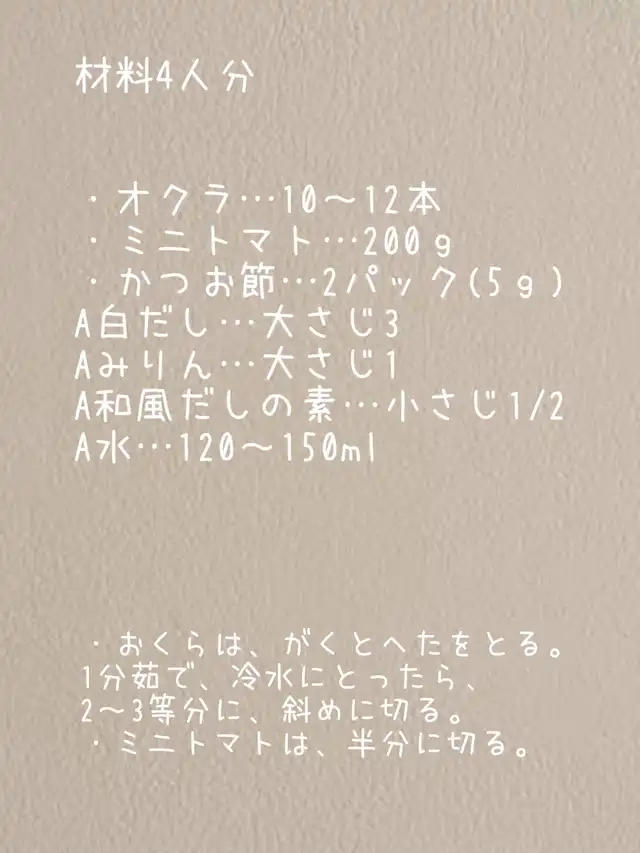 材料4人分
・オクラ…10〜12本
・ミニトマト…200g
・かつお節…2パック(5g)
A白だし…大さじ3
Aみりん…大さじ1
A和風だしの素…小さじ1/2
A水…120〜150ml
・おくらは、がくとへたをとる。
1分茹で、冷水にとったら、
2〜3等分に、斜めに切る。
・ミニトマトは、半分に切る。